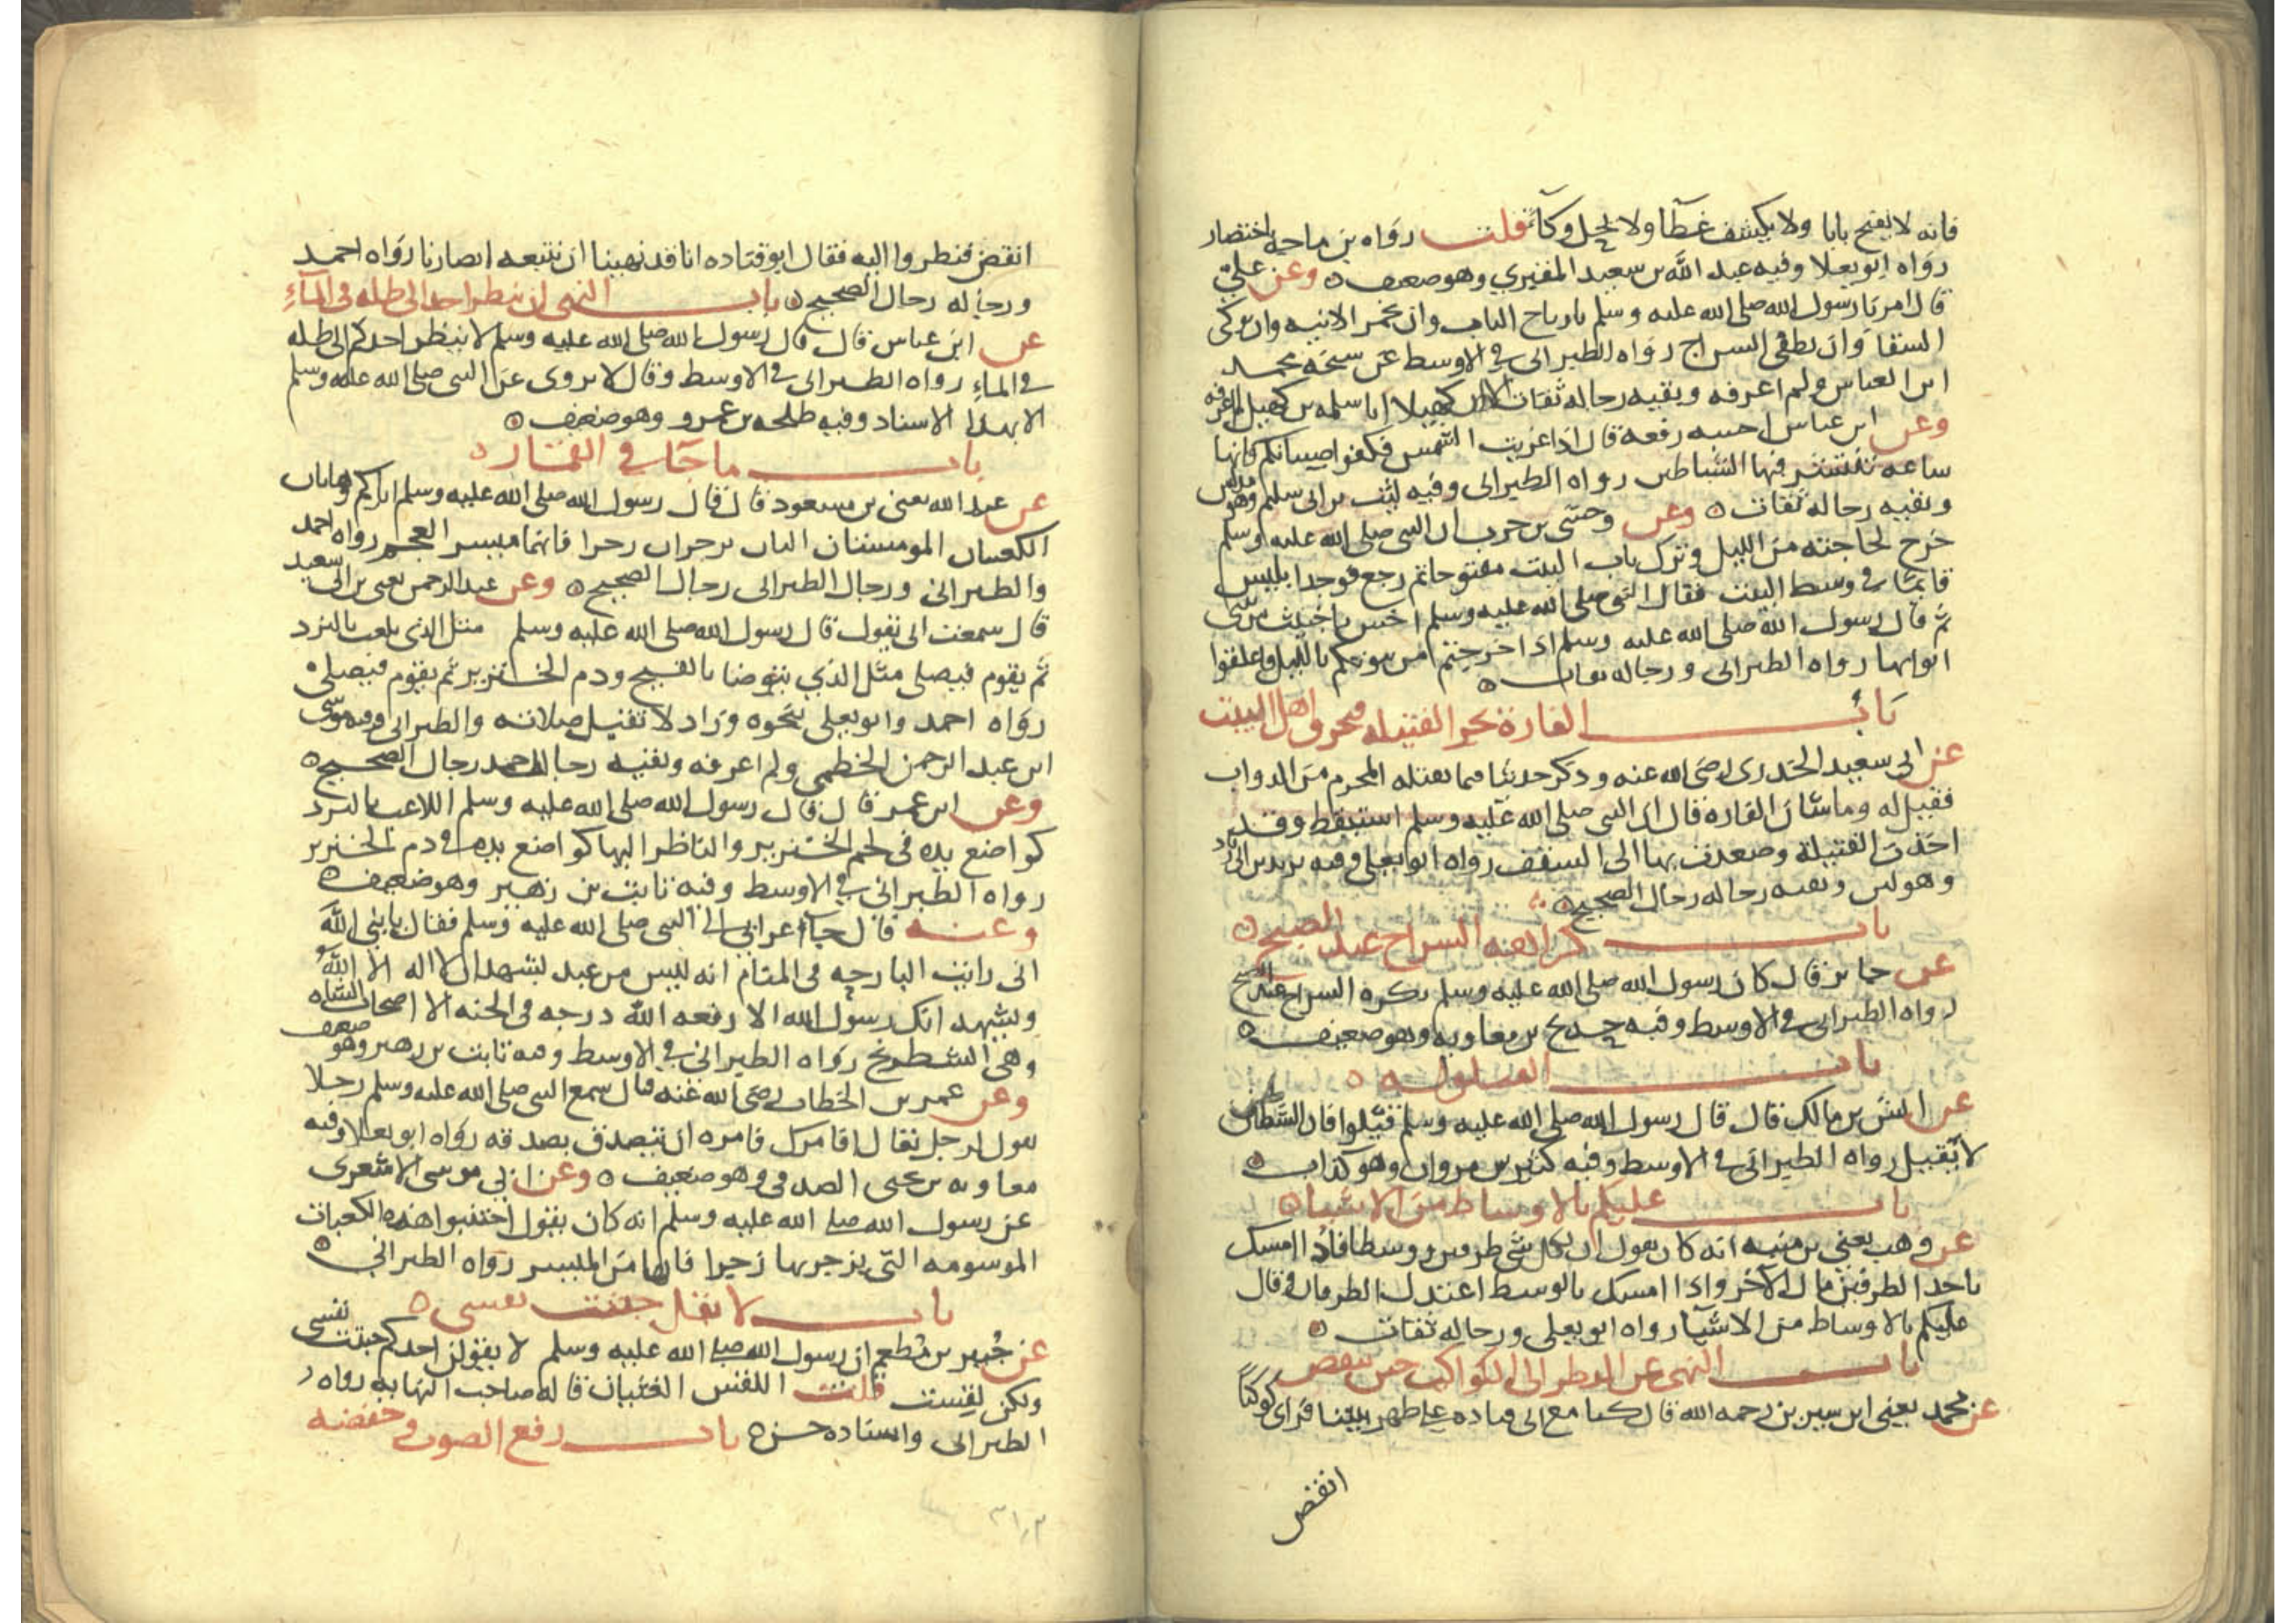 فانه لا يفتح بابا ولا يكشف غطآا ولا يحل وكآء قلت رواه بن ماجه باختصار
رواه ابو يعلا وفيه عبد الله بن سعيد المقبري وهو ضعيف ٥ وعن علي
قال امرنا رسول الله صلى الله عليه وسلم بارتاج الباب وان نخمر الانيه وان نوكى
السقا وان نطفى السراج رواه الطبرانى فى الاوسط عن شيخه محمد
ابن العباس ولم اعرفه وبقيه رجاله ثقات الا ان كهيلا ابا سلمه بن كهيل لم اعرفه
وعن ابن عباس احسبه رفعه قال اذا غربت الشمس فكفوا صبيانكم فانها
ساعه تنتشر فيها الشياطين رواه الطبرانى وفيه ليث بن ابى سليم وهو مدلس
وبقيه رجاله ثقات ٥ وعن وحشى بن حرب ان النبى صلى الله عليه وسلم
خرج لحاجته من الليل وترك باب البيت مفتوحا ثم رجع فوجد ابليس
قايما فى وسط البيت فقال النبى صلى الله عليه وسلم اخس يا خبيث من بيتى
ثم قال رسول الله صلى الله عليه وسلم اذا خرجتم من بيوتكم بالليل فاغلقوا
ابوابها رواه الطبرانى ورجاله ثقات ٥
باب الفارة تجر الفتيله فتحرق اهل البيت
عن ابى سعيد الخدرى رضى الله عنه وذكر حديثا فيما يقتله المحرم من الدواب
فقيل له وما شان الفاره قال ان النبى صلى الله عليه وسلم استيقظ وقد
اخذت الفتيلة وصعدت بها الى السقف رواه ابو يعلى وفيه يزيد بن ابى زياد
وهو لين وبقيه رجاله رجال الصحيح ٥
باب كراهية السراج عند الصبح ٥
عن جابر قال كان رسول الله صلى الله عليه وسلم يكره السراج عند الصبح
رواه الطبرانى فى الاوسط وفيه حديج بن معاويه وهو ضعيف ٥
باب القيلوله ٥
عن انس بن مالك قال قال رسول الله صلى الله عليه وسلم قيلوا فان الشياطين
لا تقيل رواه الطبرانى فى الاوسط وفيه كثير بن مروان وهو كذاب ٥
باب عليكم بالاوساط من الاشيا ٥
عن وهب يعنى بن منبه انه كان يقول ان لكل شى طرفين ووسطا فاذا امسك
باحد الطرفين مال الآخر واذا امسك بالوسط اعتدل الطرفان وقال
عليكم بالاوساط من الاشيآ رواه ابو يعلى ورجاله ثقات ٥
باب النهى عن النظر الى الكواكب حين تنقض
عن محمد يعنى ابن سيرين رحمه الله قال كنا مع ابى قتاده على ظهر بيتنا فراى كوكبًا
انقض
انقض فنظروا اليه فقال ابو قتاده انا قد نهينا ان نتبعه ابصارنا رواه احمد
ورجاله رجال الصحيح ٥ باب النهى ان ينظر احد الى ظله فى المآءِ
عن ابن عباس قال قال رسول الله صلى الله عليه وسلم لا ينظر احدكم الى ظله
فى الماءِ رواه الطبرانى فى الاوسط وقال لا يروى عن النبى صلى الله عليه وسلم
الا بهذا الاسناد وفيه طلحه بن عمرو وهو ضعيف ٥
باب ما جآ فى القمار ٥
عن عبد الله يعنى بن مسعود قال قال رسول الله صلى الله عليه وسلم اياكم وهاتان
الكعبتان الموسمتان اللتان تزجران زجرا فانهما ميسر العجم رواه احمد
والطبرانى ورجال الطبرانى رجال الصحيح ٥ وعن عبد الرحمن يعنى بن ابى سعيد
قال سمعت ابى يقول قال رسول الله صلى الله عليه وسلم مثل الذى يلعب بالنرد
ثم يقوم فيصلى مثل الذي يتوضا بالقيح ودم الخنزير ثم يقوم فيصلى
رواه احمد وابو يعلى بنحوه وزاد لا تقبل صلاته والطبرانى وفيه موسى
ابن عبد الرحمن الخطمي ولم اعرفه وبقيه رجال احمد رجال الصحيح ٥
وعن ابن عمر قال قال رسول الله صلى الله عليه وسلم اللاعب بالنرد
كواضع يده فى لحم الخنزير والناظر اليها كواضع يده فى دم الخنزير
رواه الطبرانى فى الاوسط وفيه ثابت بن زهير وهو ضعيف ٥
وعنه قال جآء اعرابى الى النبى صلى الله عليه وسلم فقال يا نبى الله
انى رايت البارحه فى المنام انه ليس من عبد يشهد ان لا اله الا الله
ويشهد انك رسول الله الا رفعه الله درجه فى الجنه الا اصحاب الشاه
وهى الشطرنج رواه الطبرانى فى الاوسط وفيه ثابت بن زهير وهو ضعيف
وعن عمر بن الخطاب رضى الله عنه قال سمع النبى صلى الله عليه وسلم رجلا
يقول لرجل تعال اقامرك فامره ان يتصدق بصدقه رواه ابو يعلا وفيه
معاويه بن يحيى الصدفى وهو ضعيف ٥ وعن ابى موسى الاشعرى
عن رسول الله صلى الله عليه وسلم انه كان يقول اجتنبوا هذه الكعبات
الموسومه التى يزجر بها زجرا فانها من الميسر رواه الطبرانى ٥
باب لا يقل خبثت نفسى ٥
عن جُبير بن مُطعم ان رسول الله صلى الله عليه وسلم لا يقولن احدكم خبثت نفسى
ولكن لقست قلت اللقس الغثيان قاله صاحب النهايه رواه
الطبرانى واسناده حسن ٥ باب رفع الصوت وخفضه